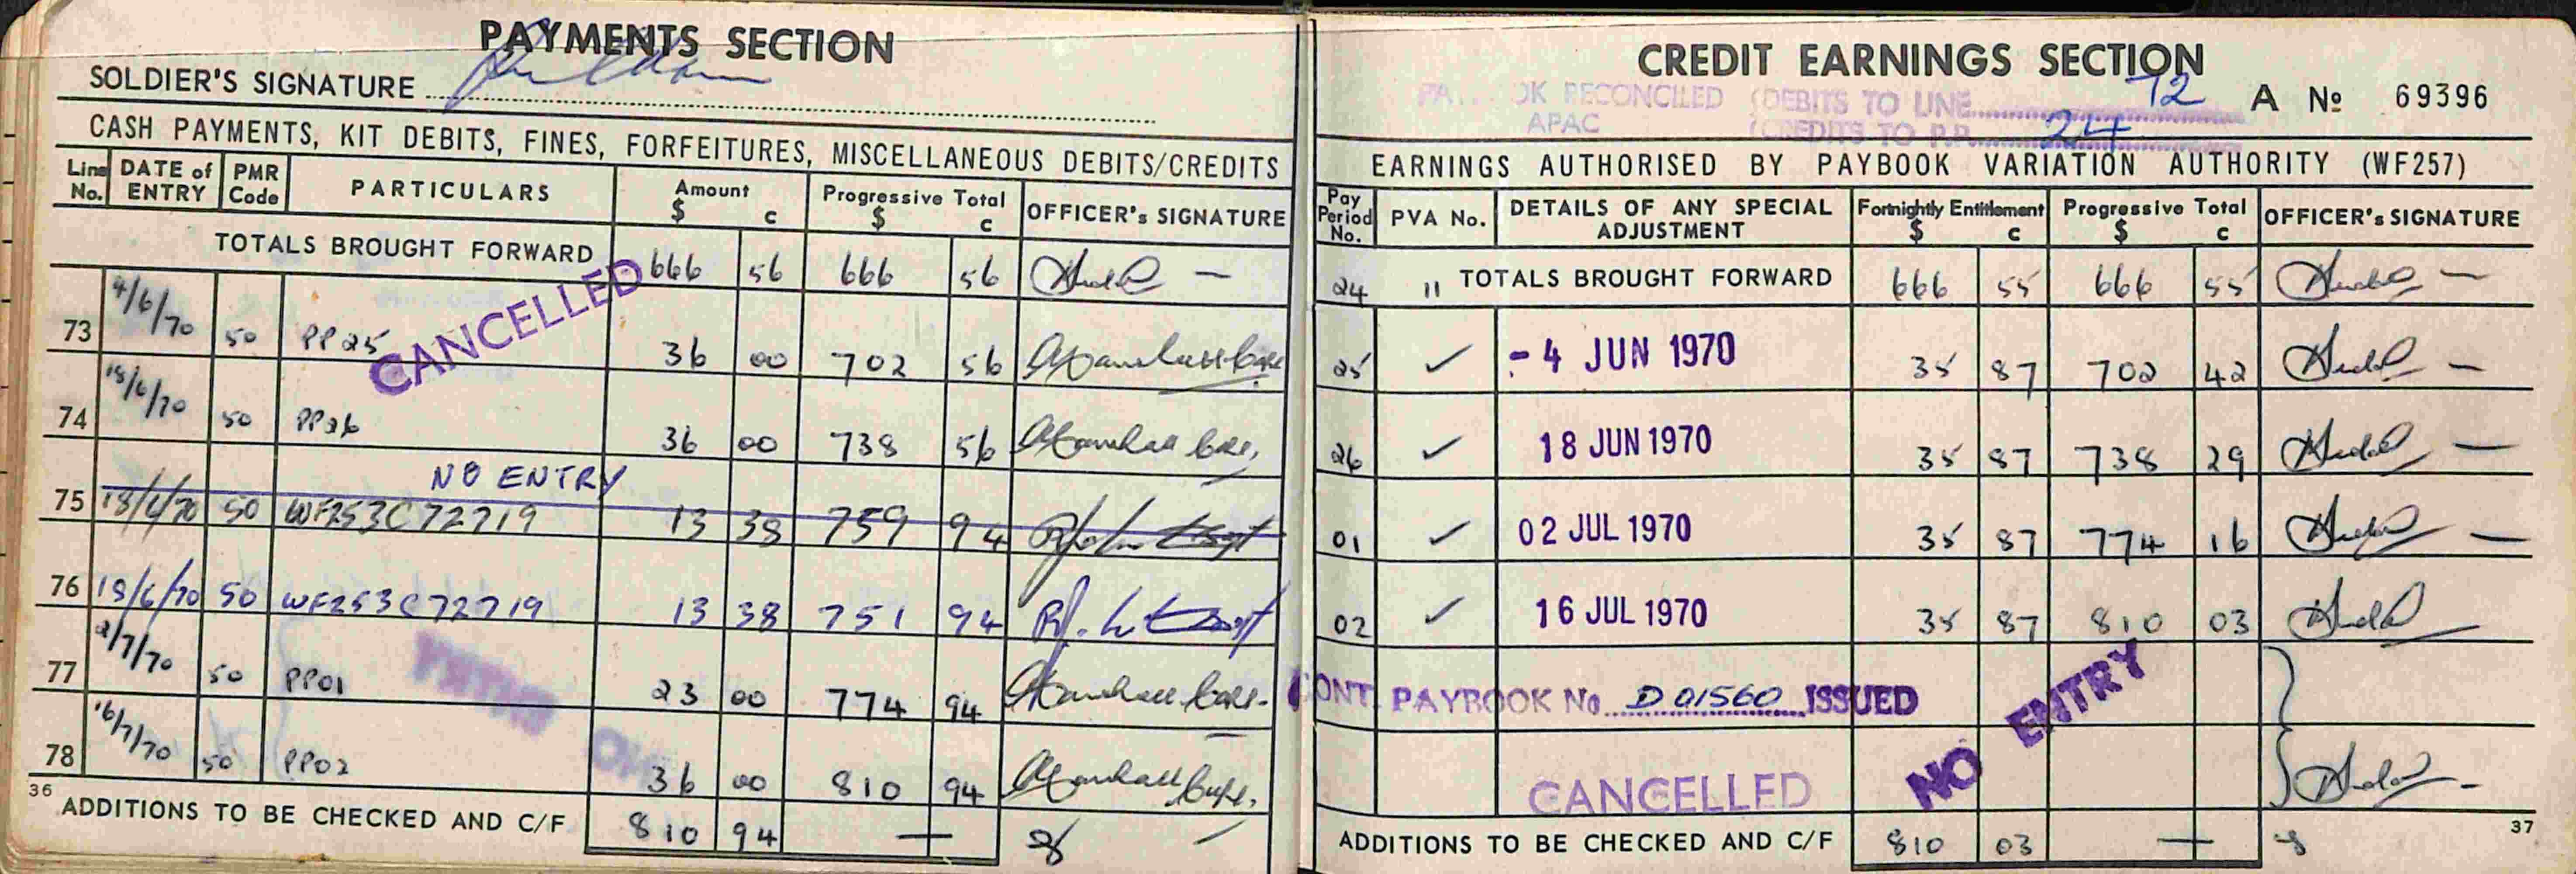 PAYMENTS SECTION
SOLDIER'S SIGNATURE
CASH PAYMENTS, KIT DEBITS, FINES, FORFEITURES, MISCELLANEOUS DEBITS/CREDITS
Line No. DATE of ENTRY PMR Code PARTICULARS Amount $ c Progressive Total $ c OFFICER's SIGNATURE
TOTALS BROUGHT FORWARD 666 56 666 56
CANCELLED
73 4/6/70 50 PP25 36 00 702 56
74 18/6/70 50 PP26 36 00 738 56
NO ENTRY
75 18/6/70 50 WF253C72719 13 38 759 94
76 18/6/70 50 WF253C72719 13 38 751 94
77 2/7/70 50 PP01 23 00 774 94
78 16/7/70 50 PP02 36 00 810 94
36 ADDITIONS TO BE CHECKED AND C/F 810 94 —
CREDIT EARNINGS SECTION
OK RECONCILED (DEBITS TO LINE 72 A No 69396
APAC (CREDITS TO P.P. 24
EARNINGS AUTHORISED BY PAYBOOK VARIATION AUTHORITY (WF257)
Pay Period No. PVA No. DETAILS OF ANY SPECIAL ADJUSTMENT Fortnightly Entitlement $ c Progressive Total $ c OFFICER's SIGNATURE
24 11 TOTALS BROUGHT FORWARD 666 55 666 55
25 ✓ - 4 JUN 1970 35 87 702 42
26 ✓ 18 JUN 1970 35 87 738 29
01 ✓ 02 JUL 1970 35 87 774 16
02 ✓ 16 JUL 1970 35 87 810 03
CONT. PAYBOOK No D 01560 ISSUED
NO ENTRY
CANCELLED
ADDITIONS TO BE CHECKED AND C/F 810 03 —
37